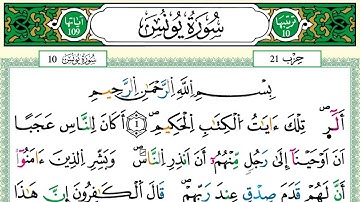 ترتيبها 10
سُورَةُ يُونُسَ
آياتها 109
حِزْب 21
سُورَةُ يُونُسَ 10
بِسْمِ اِ۬للَّهِ اِ۬لرَّحْمَٰنِ اِ۬لرَّحِيمِ
أَلَٓرۖ تِلْكَ ءَايَٰتُ اُ۬لْكِتَٰبِ اِ۬لْحَكِيمِۖ ۝١ أَكَانَ لِلنَّاسِ عَجَباً
اَنَ اَوْحَيْنَآ إِلَىٰ رَجُلٖ مِّنْهُمُۥٓ أَنَ اَنذِرِ اِ۬لنَّاسَۖ وَبَشِّرِ اِ۬لذِينَ ءَامَنُوٓاْ
أَنَّ لَهُمْ قَدَمَ صِدْقٍ عِندَ رَبِّهِمْۖ قَالَ اَ۬لْكَٰفِرُونَ إِنَّ هَٰذَا